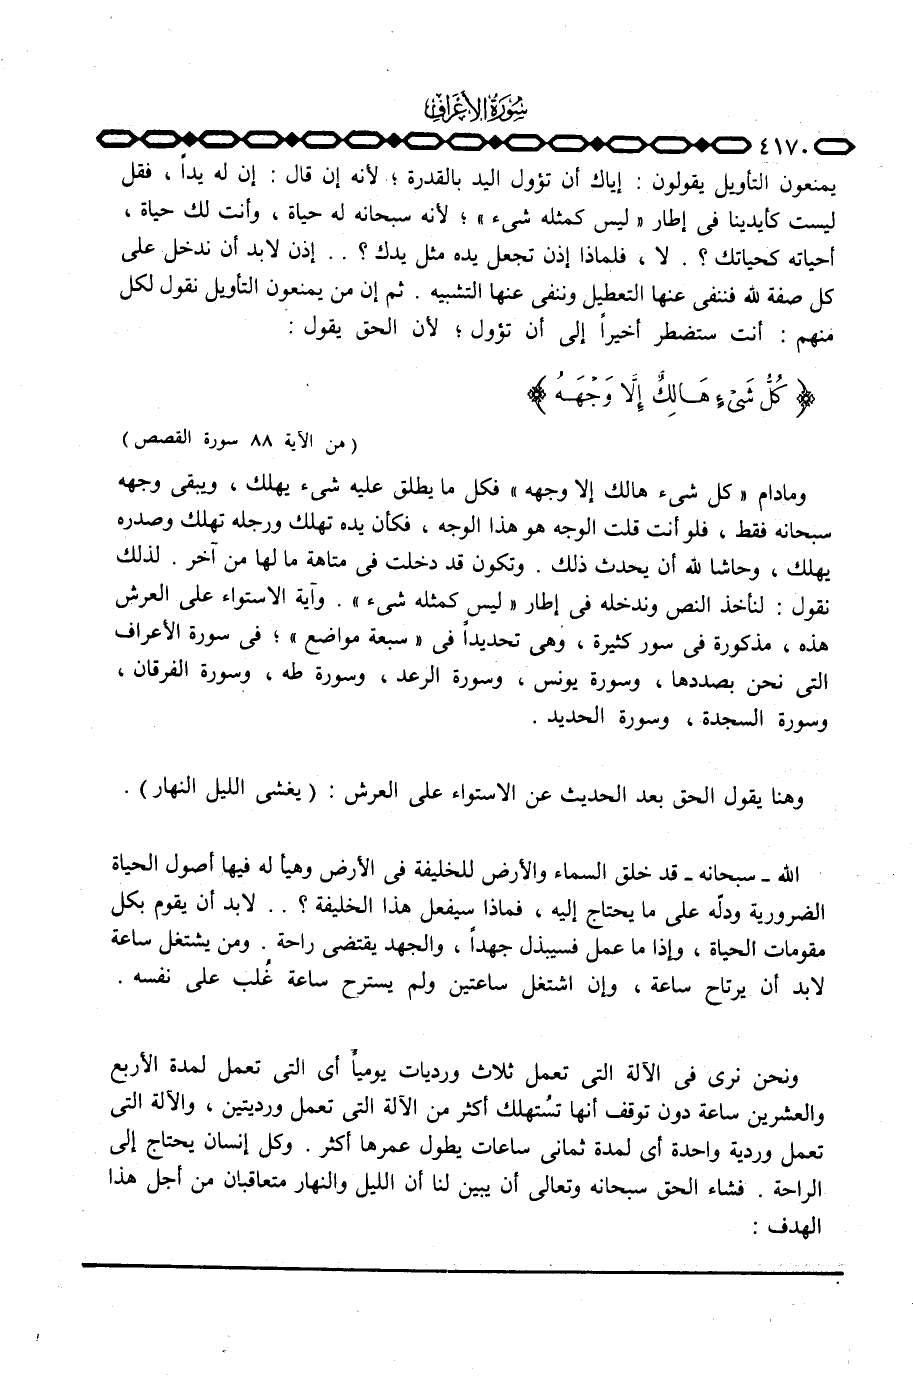 سورة الأعراف
٤١٧٠
يمنعون التأويل يقولون : إياك أن تؤول اليد بالقدرة ؛ لأنه إن قال : إن له يداً ، فقل
ليست كأيدينا فى إطار « ليس كمثله شىء » ؛ لأنه سبحانه له حياة ، وأنت لك حياة ،
أحياته كحياتك ؟ . لا ، فلماذا إذن تجعل يده مثل يدك ؟ . . إذن لابد أن ندخل على
كل صفة لله فننفى عنها التعطيل وننفى عنها التشبيه . ثم إن من يمنعون التأويل نقول لكل
منهم : أنت ستضطر أخيراً إلى أن تؤول ؛ لأن الحق يقول :
﴿ كُلُّ شَىْءٍ هَالِكٌ إِلَّا وَجْهَهُ ﴾
( من الآية ٨٨ سورة القصص )
ومادام « كل شىء هالك إلا وجهه » فكل ما يطلق عليه شىء يهلك ، ويبقى وجهه
سبحانه فقط ، فلو أنت قلت الوجه هو هذا الوجه ، فكأن يده تهلك ورجله تهلك وصدره
يهلك ، وحاشا لله أن يحدث ذلك . وتكون قد دخلت فى متاهة ما لها من آخر . لذلك
نقول : لنأخذ النص وندخله فى إطار « ليس كمثله شىء » . وآية الاستواء على العرش
هذه ، مذكورة فى سور كثيرة ، وهى تحديداً فى « سبعة مواضع » ؛ فى سورة الأعراف
التى نحن بصددها ، وسورة يونس ، وسورة الرعد ، وسورة طه ، وسورة الفرقان ،
وسورة السجدة ، وسورة الحديد .
وهنا يقول الحق بعد الحديث عن الاستواء على العرش : ( يغشى الليل النهار ) .
الله ـ سبحانه ـ قد خلق السماء والأرض للخليفة فى الأرض وهيأ له فيها أصول الحياة
الضرورية ودلّه على ما يحتاج إليه ، فماذا سيفعل هذا الخليفة ؟ . . لابد أن يقوم بكل
مقومات الحياة ، وإذا ما عمل فسيبذل جهداً ، والجهد يقتضى راحة . ومن يشتغل ساعة
لابد أن يرتاح ساعة ، وإن اشتغل ساعتين ولم يسترح ساعة غُلب على نفسه .
ونحن نرى فى الآلة التى تعمل ثلاث ورديات يومياً أى التى تعمل لمدة الأربع
والعشرين ساعة دون توقف أنها تسُتهلك أكثر من الآلة التى تعمل ورديتين ، والآلة التى
تعمل وردية واحدة أى لمدة ثمانى ساعات يطول عمرها أكثر . وكل إنسان يحتاج إلى
الراحة . فشاء الحق سبحانه وتعالى أن يبين لنا أن الليل والنهار متعاقبان من أجل هذا
الهدف :